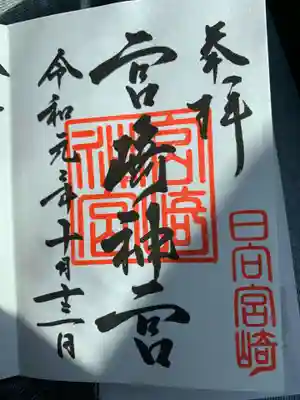 奉拝
日向宮崎
宮崎神宮
宮崎
神宮
令和元年十月十二日